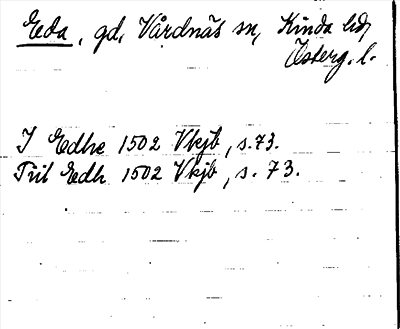 Eda, gd, Vårdnäs sn, Kinda hd,
Österg. l.
I Edhe 1502 Vkjb, s. 73.
Till Edh 1502 Vkjb, s. 73.